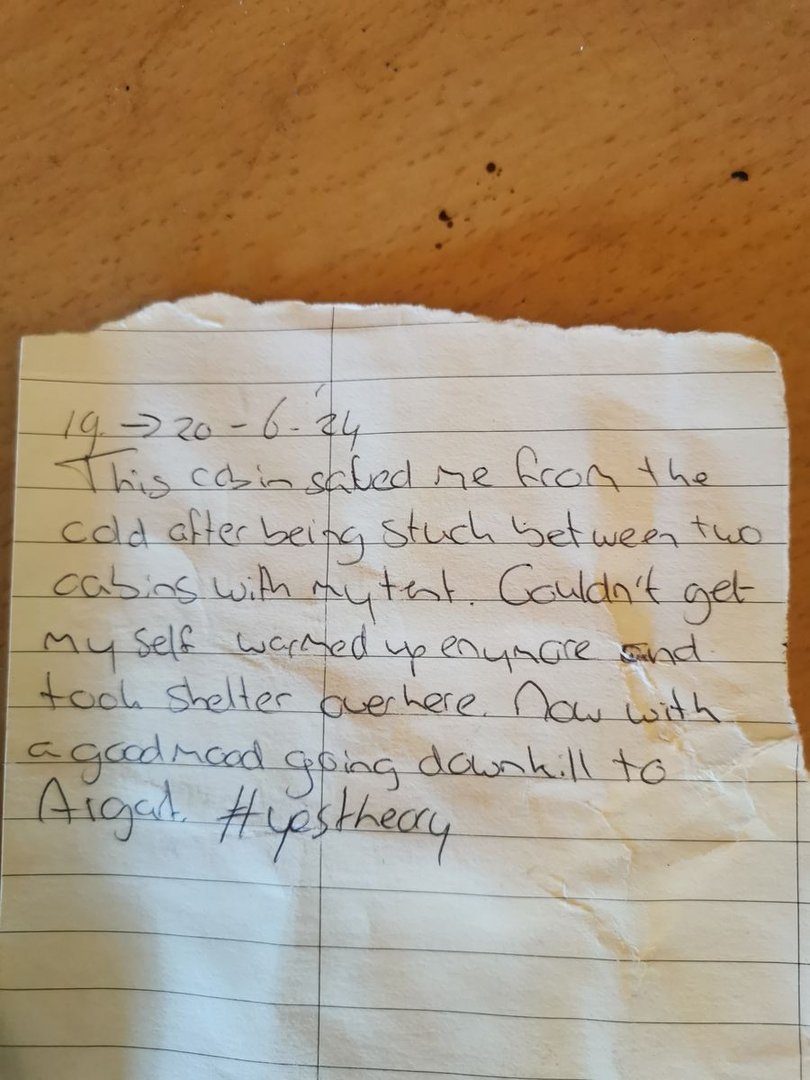 19. → 20 - 6 - '24
This cabin safed me from the
cold after being stuck between two
cabins with my tent. Couldn't get
my self warmed up enymore and
took shelter over here. Now with
a good mood going downhill to
#yestheory